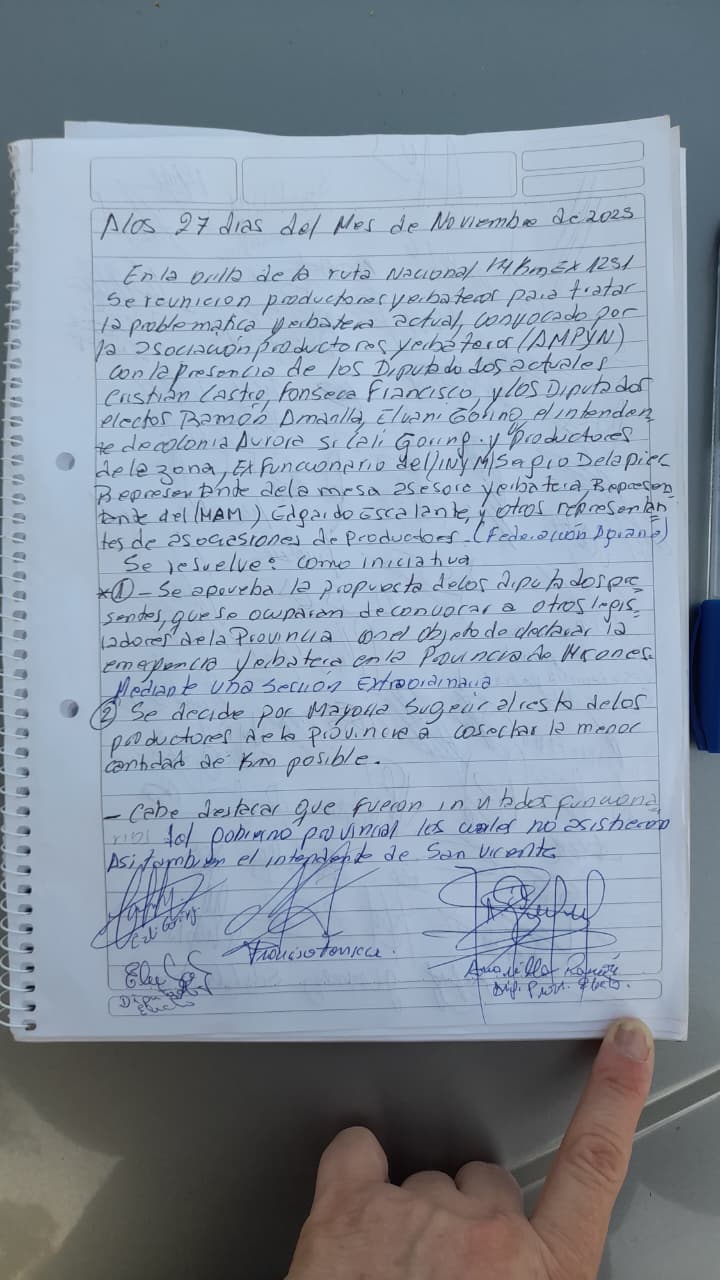 A los 27 dias del Mes de Noviembre de 2025
En la orilla de la ruta Nacional 14 Km Ex 1251
se reunicion productores yerbateros para tratar
la problematica yerbatera actual, convocado por
la asociación productores yerbateros (AMPYN)
con la presencia de los Diputado dos actuales
Cristian Castro, Fonseca Francisco, y los Diputados
electos Ramón Amarilla, Eluani Goring el intenden
te de colonia Aurora Sr Cali Goring. y Productores
de la zona, Ex Funcionario del INYM Sapio Delapier
Representante de la mesa asesora yerbatera, Represen
tante del (MAM) Edgardo Escalante, y otros representan
tes de asociasiones de Productores - (Federación Agraria)
Se resuelve: como iniciativa
* ① - Se aprueba la propuesta de los diputados pre
sentes, que se ocuparan de convocar a otros legis
ladores de la Provincia con el objeto de declarar la
emergencia yerbatera en la Provincia de Misiones.
Mediante una Sección Extraordinaria
② Se decide por Mayoria Sugerir al resto de los
productores de la Provincia a cosechar la menor
cantidad de Km posible.
- Cabe destacar que fueron invitados funciona
rios del gobierno provincial los cuales no asistieron
Asi tambien el intendente de San Vicente
Cali Goring.
Francisco Fonseca.
Amarilla Ramón
Dip. Prov. Electo.
Diputado
Electo